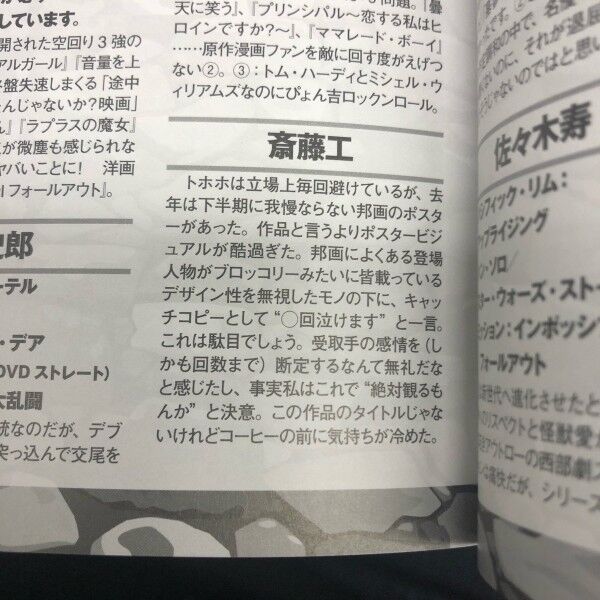 しています。
開された空回り3強の
アルガール』『音量を上
盤失速しまくる「途中
んじゃないか?映画」
ん』『ラプラスの魔女』
が微塵も感じられな
ヤバいことに! 洋画
フォールアウト』。
郎
ーテル
・デア
DVDストレート)
大乱闘
統なのだが、デブ
突っ込んで交尾を
も問題。『曇
天に笑う』、『プリンシパル〜恋する私はヒ
ロインですか?〜』、『ママレード・ボーイ』
……原作漫画ファンを敵に回す度がえげつ
ない②。③:トム・ハーディとミシェル・ウ
ィリアムズなのにぴょん吉ロックンロール。
斎藤工
トホホは立場上毎回避けているが、去
年は下半期に我慢ならない邦画のポスタ
ーがあった。作品と言うよりポスタービジ
ュアルが酷過ぎた。邦画によくある登場
人物がブロッコリーみたいに皆載っている
デザイン性を無視したモノの下に、キャッ
チコピーとして“○回泣けます”と一言。
これは駄目でしょう。受取手の感情を(し
かも回数まで)断定するなんて無礼だな
と感じたし、事実私はこれで“絶対観るも
んか”と決意。この作品のタイトルじゃな
いけれどコーヒーの前に気持ちが冷めた。
和の中で、名産
ないのに、それが退屈
じゃないのではと思い
佐々木寿
フィック・リム:
ップライジング
ン・ソロ/
ター・ウォーズ・ストー
ッション:インポッシブ
フォールアウト
新世代へ進化させたと
のリスペクトと怪獣愛が
アウトローの西部劇ス
は痛快だが、シリーズ